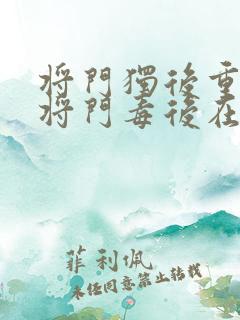 将門獨後重
将門毒後在
菲利佩
未经同意禁止转载